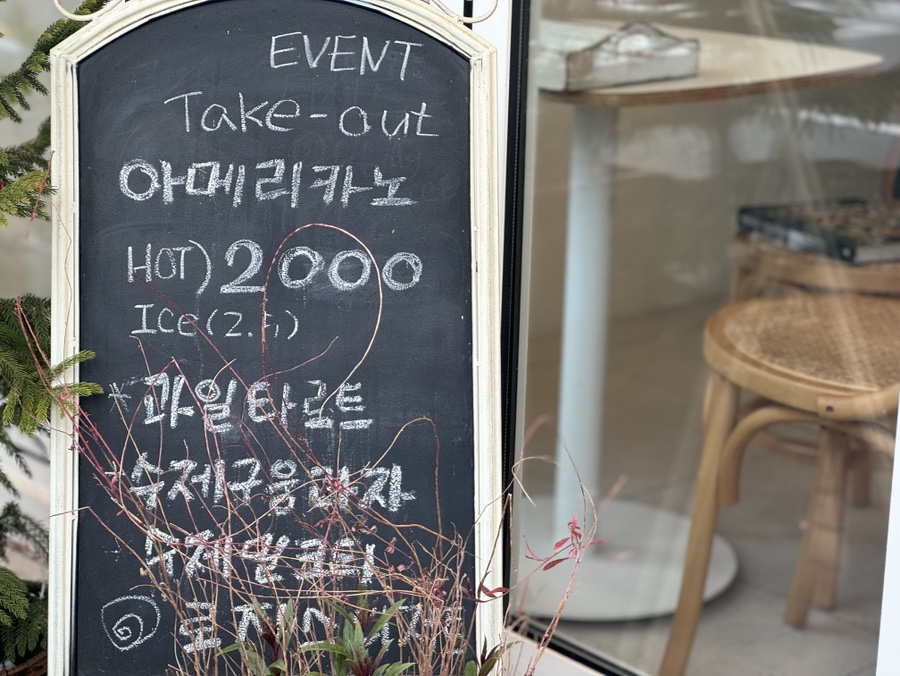 EVENT
Take-out
아메리카노
HOT) 2000
ICE (2.5)
* 과일 타르트
* 수제구움과자
수제